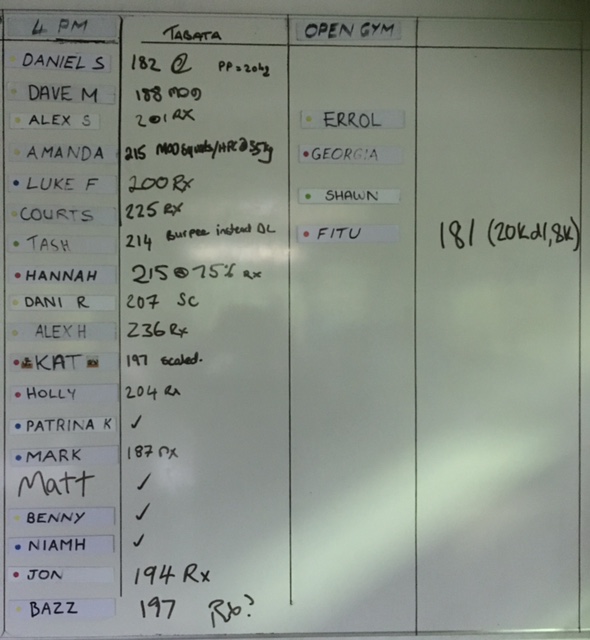 4 PM TABATA OPEN GYM
DANIEL S 182 PP = 20kg
DAVE M 188 MOD
ALEX S 201 RX ERROL
AMANDA 215 MOD HPC @ 35kg GEORGIA
LUKE F 200 Rx SHAWN
COURTS 225 RX
TASH 214 Burpee instead DL FITU 181 (20K dl, 8K)
HANNAH 215 @ 75% RX
DANI R 207 SC
ALEX H 236 Rx
KAT 197 scaled.
HOLLY 204 Rx
PATRINA K ✓
MARK 187 RX
Matt ✓
BENNY ✓
NIAMH ✓
JON 194 Rx
BAZZ 197 Rx?